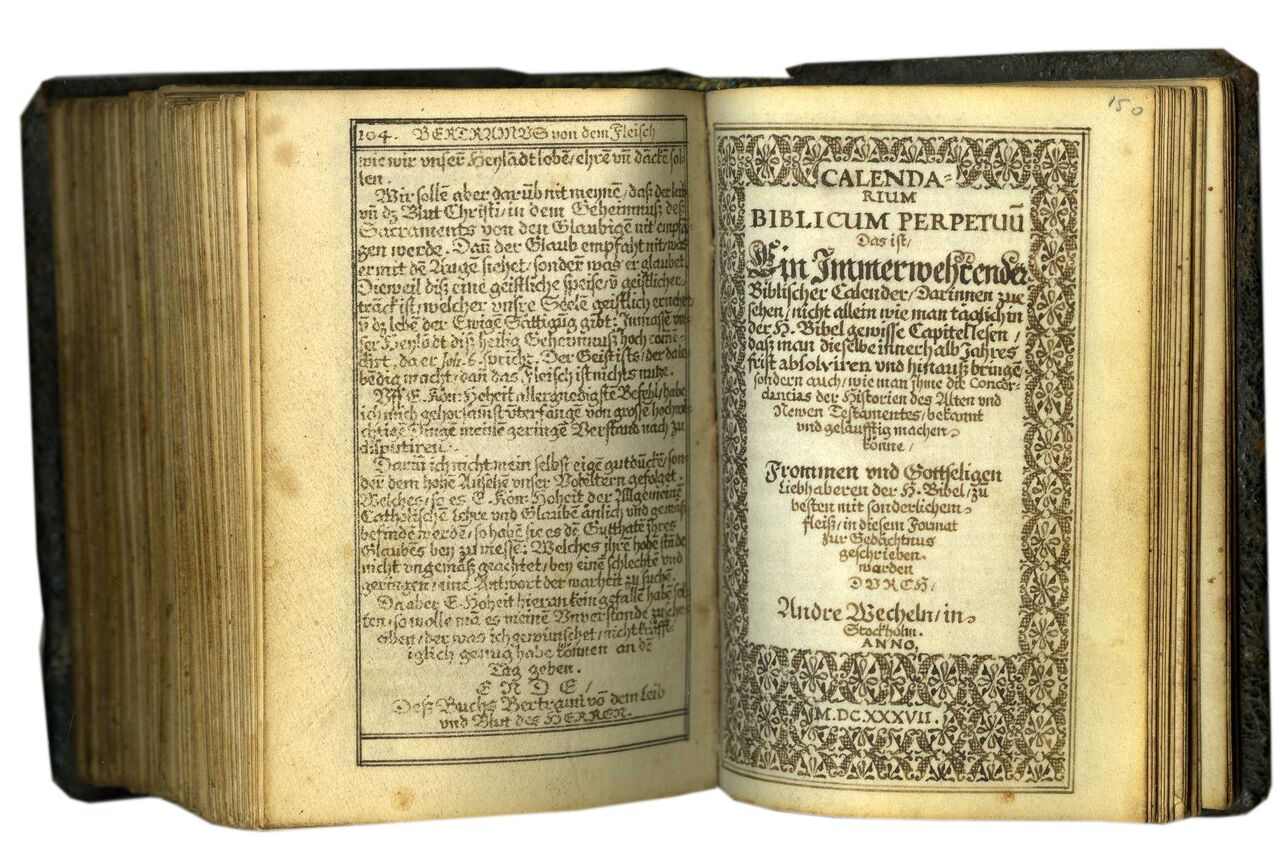 104. BERTRAMVS von dem Fleisch
wie wir vnser Heylādt lobē/ehrē vn̄ dāckē sol-
len.
Wir sollē aber darūb nit meinē/daß der leib
vn̄ dz Blut Christi/in dem Geheimnuß deß
Sacraments von den Glaubigē nit empfā-
gen werde. Dan̄ der Glaub empfaht nit/was
er mit dē Augē siehet/sonder was er glaubet.
Dieweil diß eine geistliche speise/v̄ geistlicher
trāck ist/welcher vnsre Seelē geistlich ernehrt
v̄ dz lebē der Ewigē Sättigūg gibt: Inmassē vn-
ser Heylādt diß heilig Geheimnuß hoch com̄ē-
dirt, da er Joh. 6. spricht. Der Geist ists/der da le-
bēdig macht/dan̄ das Fleisch ist nichts nutze.
Vff E. Kön: Hoheit allergnedigstē Befehl/habe
ich mich gehorsamst vnterfangē von grossē hochwi-
chtigē Dingē meinē geringē Verstand nach zu
disputiren.
Darin̄ ich nicht mein selbst eigē gutdūckē/son-
der dem hohē Ansehē vnser Voreltern gefolget.
Welches/so es E. Kön: Hoheit der Allgemeinē
Catholischē Lehre vnd Glaubē änlich vnd gemäß
befindē werdē/so habē sie es dē Gutthatē ihres
Glaubēs bey zu messē: Welches ihrē hohē stādē
nicht vngemäß geachtet/bey einē schlechtē vnd
geringen/eine Antwort der warheit zu suchē.
Da aber E. Hoheit hieran kein gefallē habē sol-
ten/so wolle mā es meinē Vnverstande zuschr-
eiben/der was ich gewünschet/nicht kräfft-
iglich genug habe können an dē
Tag geben.
ENDE/
Deß Buchs Bertrami vō dem Leib
vnd Blut des HERREN.
150
CALENDA-
RIUM
BIBLICUM PERPETUŪ
Das ist/
Ein Immerwehrender
Biblischer Calender/Darinnen zue
sehen/nicht allein wie man täglich in
der H. Bibel gewisse Capitel lesen/
daß man dieselbe innerhalb Jahres
frist absolviren vnd hinauß bringē
sondern auch/wie man ihme die Concor-
dantias der Historien des Alten vnd
Newen Testamentes/bekannt
vnd geläufftig machen
könne/
Frommen vnd Gottseligen
Liebhaberen der H. Bibel/zu
besten mit sonderlichem
fleiß/in diesem Format
zur Gedächtnus
geschrieben
worden
DVRCH/
Andre Wecheln/in
Stockholm.
ANNO,
M.DC.XXXVII.